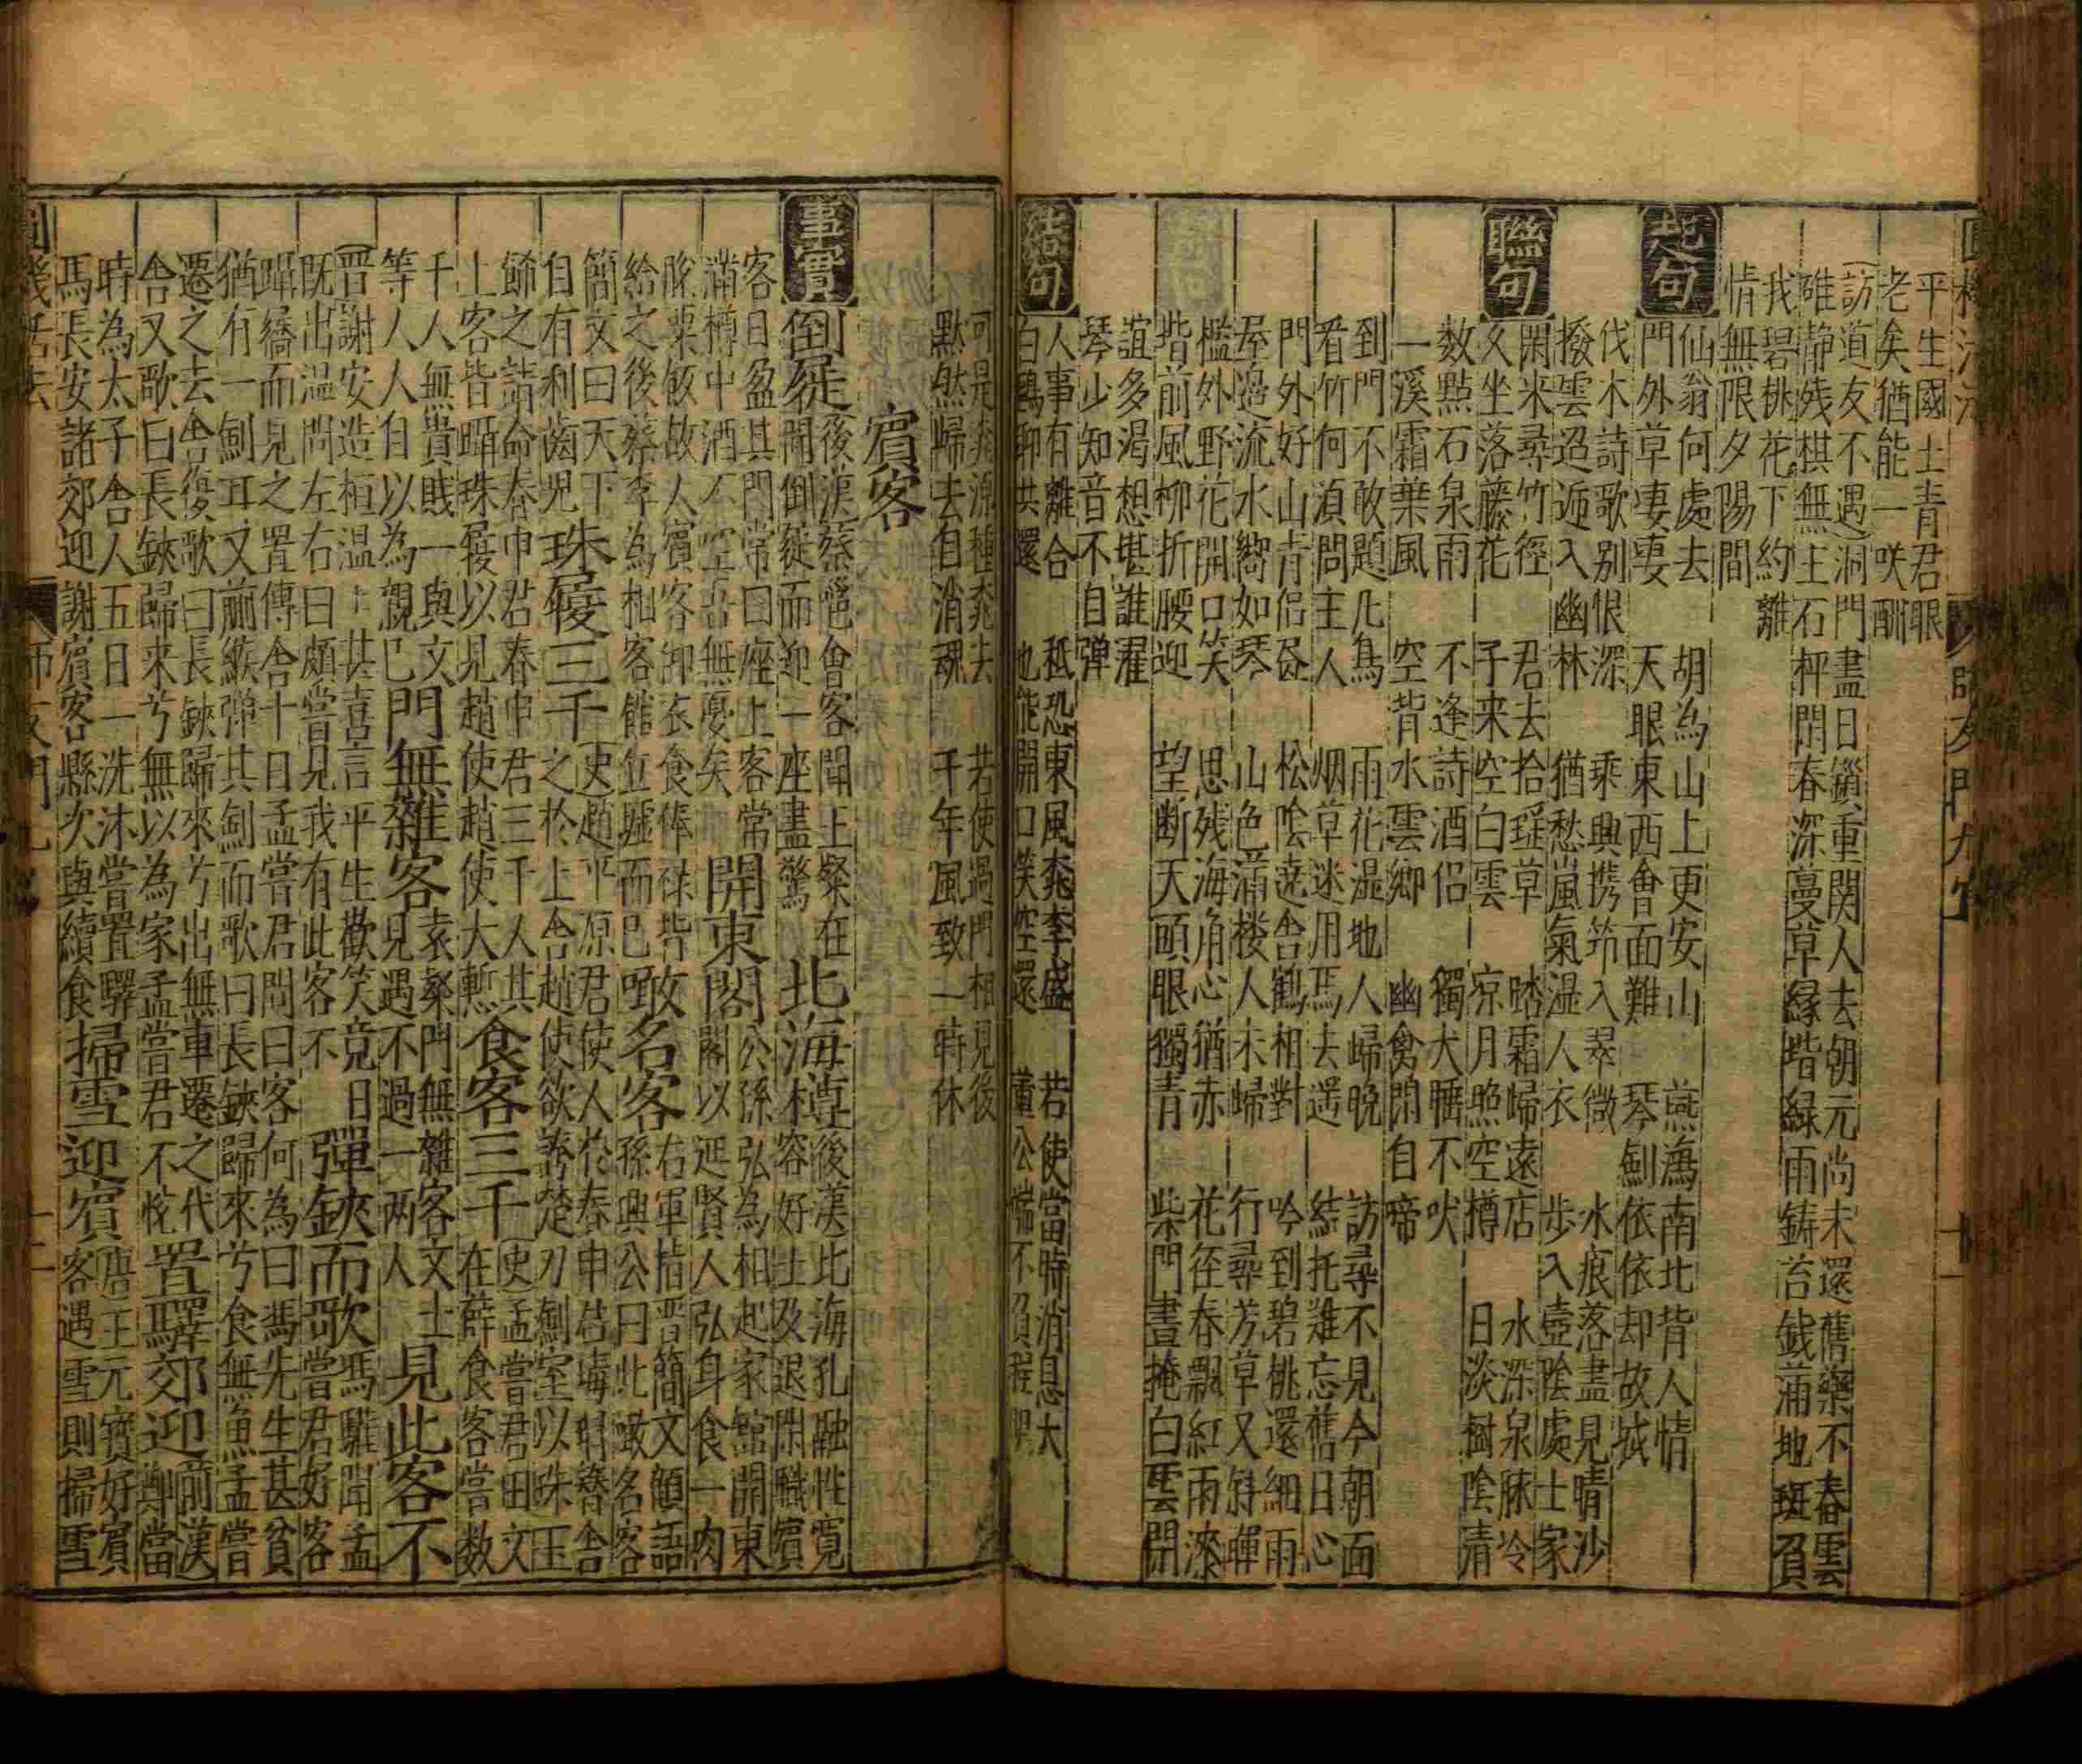 平生國士青君眼
老矣猶能一咲酬
訪道友不遇洞門盡日鎖重関人去朝元尚未還舊藥不春雲
碓静残棋無主石枰閒春深蔓草縁堦緑雨鋳苔銭蒲地斑負
我碧桃花下約離
情無限夕陽間
起句
仙翁何處去 胡為山上更安山 燕瀉南北背人情
門外草萋萋 天眼東西會面難 琴劍依依却故城
伐木詩歌别恨深 乘興携笻入翠微 水痕落盡見晴沙
撥雲迢逓入幽林 猶愁嵐氣湿人衣 步入壺陰處士家
聯句
閑来尋竹徑 君去拾瑶草 踏霜歸遠店 水深泉脉冷
久坐落藤花 子来空白雲 凉月照空樽 日淡樹陰清
数點石泉雨 不逢詩酒侣 獨犬眠不吠
一溪霜葉風 空背水雲郷 幽禽閒自啼
到門不敢題凢鳥 雨花湿地人歸晚 訪尋不見今朝面
看竹何湏問主人 烟草迷用馬去遲 結托難忘舊日心
門外好山青侣 松陰遶舎鶴相對 吟到碧桃還細雨
屋邉流水嚮如琴 山色蒲楼人未歸 行尋芳草又斜暉
檻外野花開口笑 思残海角心猶赤 花徑春飄紅雨滚
堦前風柳折腰迎 望断天頭眼獨青 柴門晝掩白雲閒
誼多渴想堪誰濯
琴少知音不自弹
結句
人事有離合 秪恐東風桃李盛 若使當時消息大
白鷗聊共還 也能開口笑空還 董公端不負程
可是桃源種桃去 若使過門相見後
默然歸去自消魂 千年風致一時休
賓客
事實
倒屣 後漢蔡邕會客聞王粲在
門倒屣而迎一座盡驚 北海樽 後漢北海孔融性寛
容好士及退閑職賓
客日盈其門常曰座上客常
滿樽中酒不空吾無憂矣 開東閤 公孫弘為相起家舘開東
閤以延賢人弘身食一肉
脫粟飯故人賓客仰衣食俸禄皆
給之後蔡李為相客館丘墟而已 故名客 右軍指晋簡文顧語
孫興公曰此噉名客
簡文曰天下
自有利齒児 珠履三千 史趙平原君使人於春申君
之於上舎趙使欲誇楚刀劍室以珠玉
餙之請命春申君春申君三千人其
上客皆躡珠履以見趙使趙使大慙 食客三千 史孟嘗君田文
在薛食客嘗数
千人無貴賤一與文
等人人自以為親巳 門無雜客 袁粲門無雜客文士
見遇不過一兩人 見此客不
晋謝安造桓温甚喜言平生歡笑竟日
既出温問左右曰頗嘗見我有此客不 彈鋏而歌 馮驩聞孟
嘗君好客
躡屩而見之置傳舎十日孟嘗君問曰客何為曰馮先生甚貧
猶有一劍耳又蒯緱彈其劍而歌曰長鋏歸來兮食無魚孟嘗
遷之去舎復歌曰長鋏歸來兮出無車遷之代
舎又歌曰長鋏歸来兮無以為家孟嘗君不恱 置驛郊迎 前漢
鄭當
時為太子舎人五日一洗沐嘗置驛
馬長安諸郊迎謝賓客縣次與續食 掃雪迎賓 唐王元寳好賓
客遇雪則掃雪